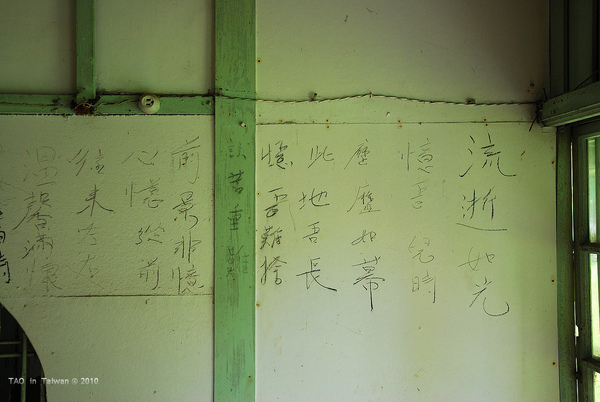 流逝如光
憶吾兒時
歷歷如幕
此地吾長
憶吾難捨
苦重難
前景非憶
心憶從前
往來
溫馨滿懷
TAO in Taiwan © 2010